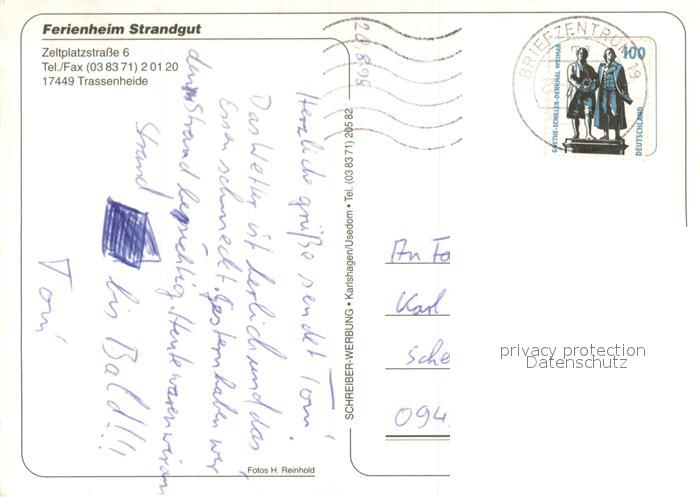 Ferienheim Strandgut
Zeltplatzstraße 6
Tel./Fax (03 83 71) 2 01 20
17449 Trassenheide
20.8.98
Herzliche grüße sendet Toni!
Das Wetter ist herlich und das
Essen schmeckt. Gestern haben wir
den Strand besichtig. Heute waren wir am
Strand
bis Bald!!!
Toni
SCHREIBER-WERBUNG • Karlshagen/Usedom • Tel. (03 83 71) 205 82
Fotos H. Reinhold
BRIEFZENTRUM 19
100
GOETHE-SCHILLER-DENKMAL WEIMAR
DEUTSCHLAND
An Fa
Karl
Sche
094
privacy protection
Datenschutz